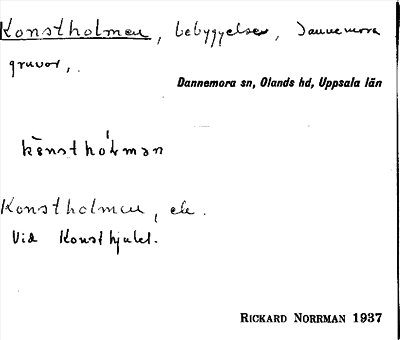 Konstholmen, bebyggelse, Dannemora
gruvor,.
Dannemora sn, Olands hd, Uppsala län
kȯnsthȯlmən
Konstholmen, ek.
Vid Konsthjulet.
RICKARD NORRMAN 1937